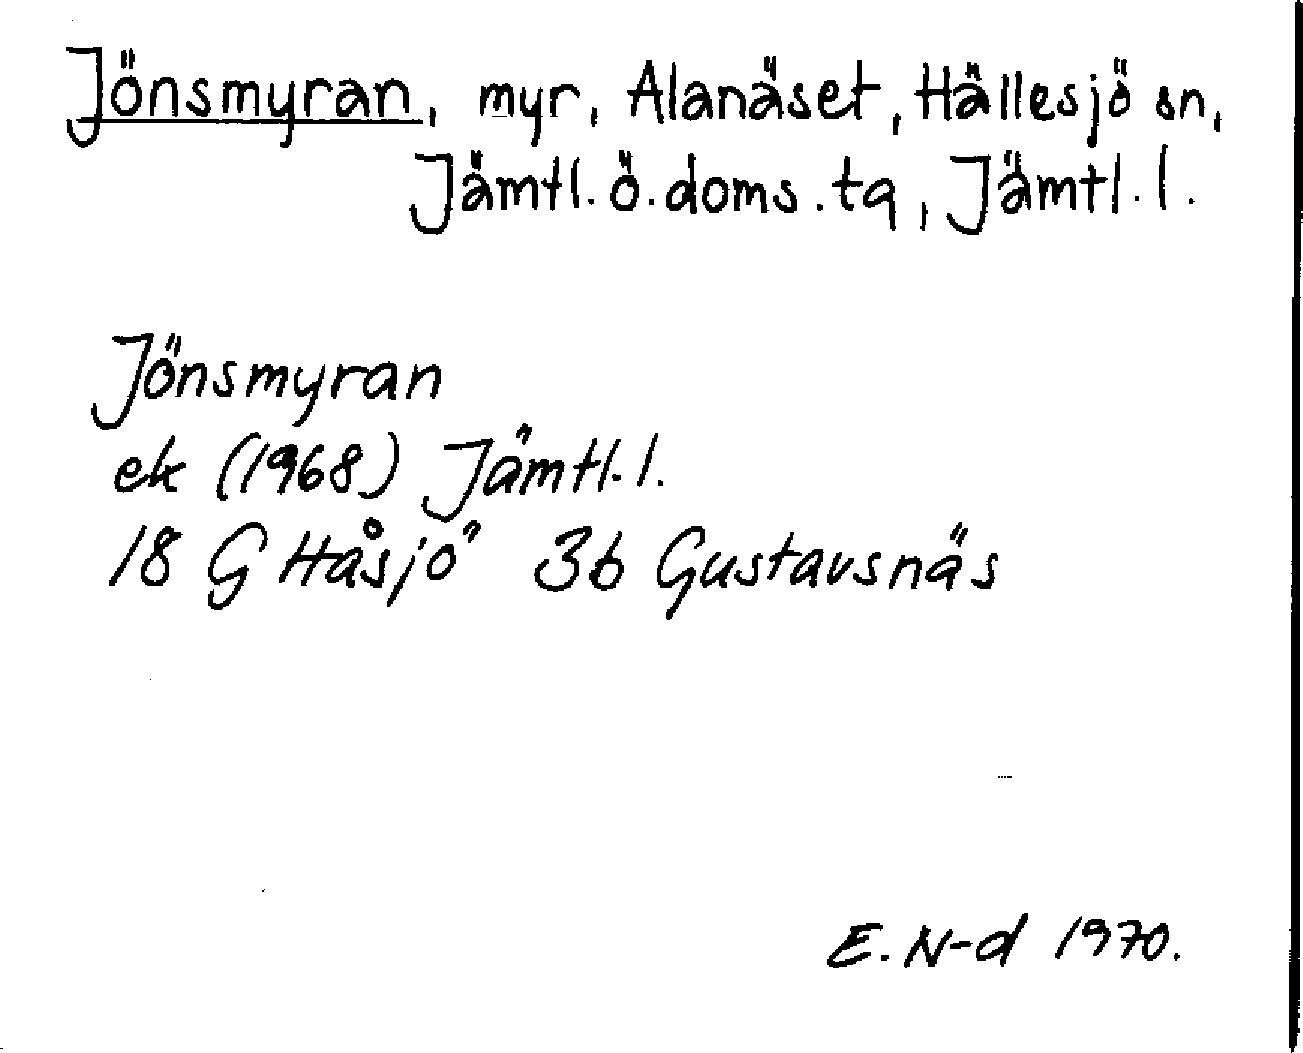 Jönsmyran, myr, Alanäset, Hällesjö sn,
Jämtl. ö. doms. tq, Jämtl. l.
Jönsmyran
ek (1968) Jämtl. l.
18 G Håsjö 3b Gustavsnäs
E. N-d 1970.